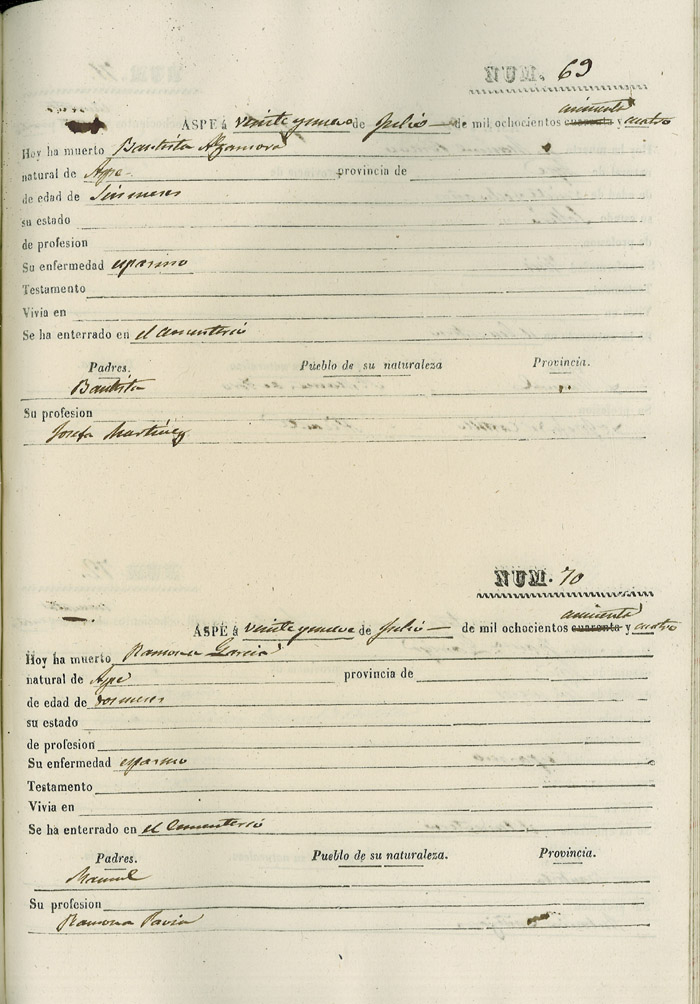 NUM. 69
cincuenta
ASPE á veinte y nueve de Julio de mil ochocientos cuarenta y cuatro
Hoy ha muerto Bautista Alzamora
natural de Aspe provincia de
de edad de
su estado
de profesion
Su enfermedad espasmo
Testamento
Vivia en
Se ha enterrado en el Cementerio
Padres. Pueblo de su naturaleza Provincia.
Bautista
Su profesion
Josefa Martinez
NUM. 70
cincuenta
ASPE á veinte y nueve de Julio de mil ochocientos cuarenta y cuatro
Hoy ha muerto Ramona Garcia
natural de Aspe provincia de
de edad de dos meses
su estado
de profesion
Su enfermedad espasmo
Testamento
Vivia en
Se ha enterrado en el Cementerio
Padres. Pueblo de su naturaleza. Provincia.
Manuel
Su profesion
Ramona Pavia